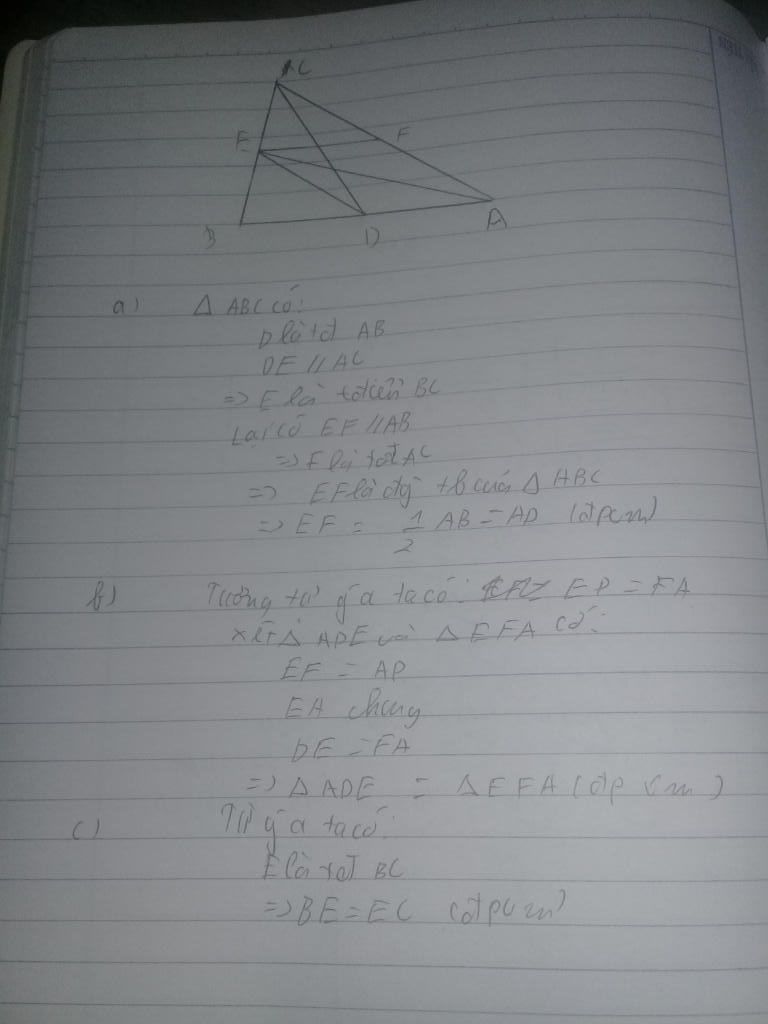 C
E
F
B
D
A
a) Δ ABC có:
D là tđ AB
DE // AC
=> E là tđ của BC
Lại có EF // AB
=> F là tđ AC
=> EF là đg tb của Δ ABC
=> EF = 1/2 AB = AD (đpcm)
b) Tương tự ý a ta có: ED = FA
Xét Δ ADE và Δ EFA có:
EF = AD
EA chung
DE = FA
=> Δ ADE = Δ EFA (đpcm)
c) Từ ý a ta có:
E là tđ BC
=> BE = EC (đpcm)